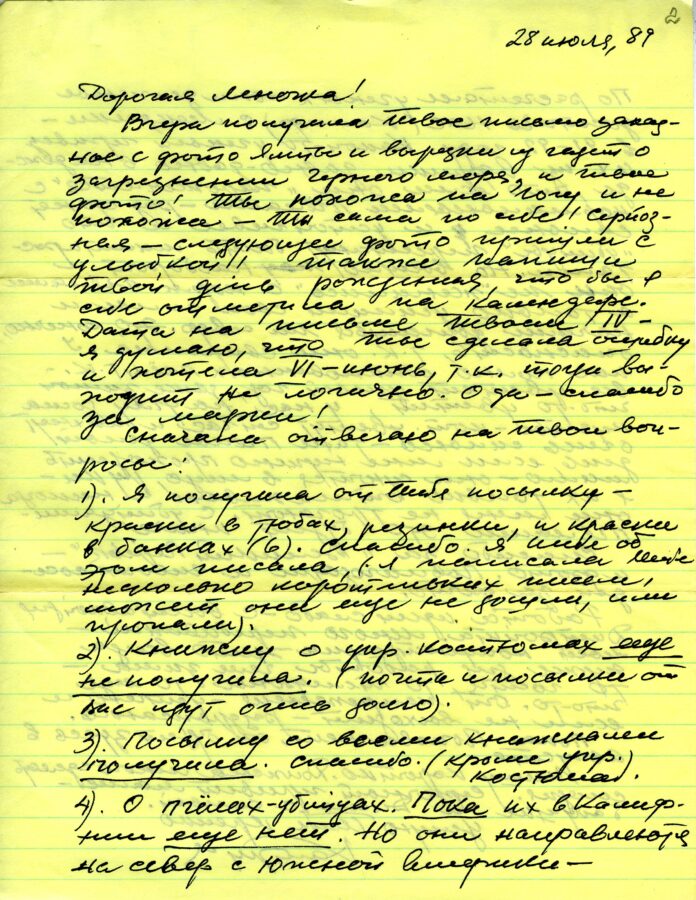 2
28 июля, 89
Дорогая Леночка!
Вчера получила твое письмо заказ-
ное с фото Ялты и вырезки из газет о
загрязнении Черного моря, и твое
фото! Ты похожа на и не
похожа – ты сама по себе! Серйоз-
ная – следующее фото пришли с
улыбкой!! также напиши
твой день рождения, что бы я
себе отметила на календаре.
Дата на письме твоем IV –
я думаю, что ты сделала ошибку
и хотела VI – июнь, т.к. тогда вы-
ходит не логично. О да – спасибо
за марки!
Сначала отвечаю на твои воп-
росы:
1). Я получила от тебя посылку –
краски в тюбах, резинки, и краски
в банках (6). Спасибо. Я тебе об
этом писала, (я написала тебе
несколько коротеньких писем,
может они еще не дошли, или
пропали).
2). Книжку о укр. костюмах еще
не получила. (почта и посылки от
вас идут очень долго).
3). Посылку со всеми книжками
получила. Спасибо. (кроме укр.
костюма).
4). О пчёлах-убийцах. Пока их в Калиф-
нии еще нет. Но они направляются
на север с Южной Америки –